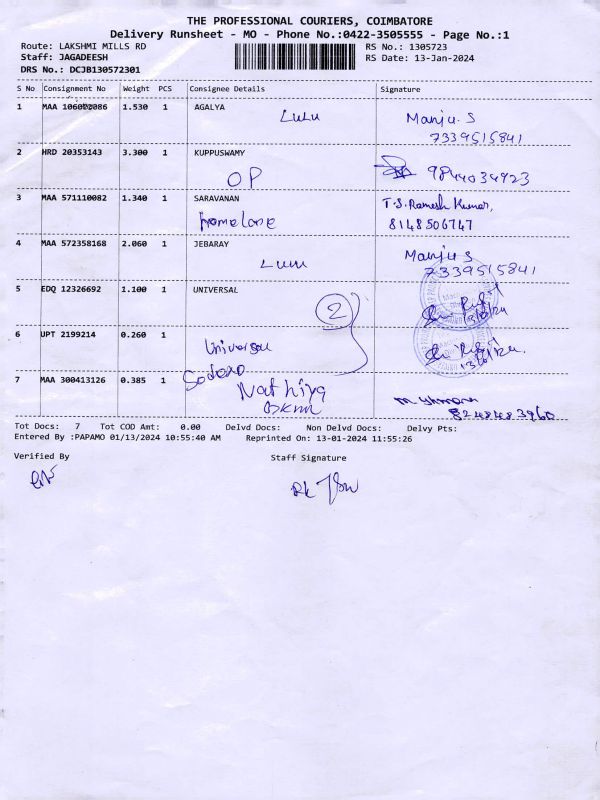 THE PROFESSIONAL COURIERS, COIMBATORE
Delivery Runsheet - MO - Phone No.:0422-3505555 - Page No.:1
Route: LAKSHMI MILLS RD RS No.: 1305723
Staff: JAGADEESH RS Date: 13-Jan-2024
DRS No.: DCJB130572301
S No Consignment No Weight PCS Consignee Details Signature
1 MAA 106000086 1.530 1 AGALYA
LuLu Manju. S
7339515841
2 HRD 20353143 3.300 1 KUPPUSWAMY
OP 9844034923
3 MAA 571110082 1.340 1 SARAVANAN T.S. Ramesh Kumar,
8148506747
4 MAA 572358168 2.060 1 JEBARAY Manju S
Luu 7339515841
5 EDQ 12326692 1.100 1 UNIVERSAL
2
6 UPT 2199214 0.260 1
Universal
7 MAA 300413126 0.385 1 Nathiya
8248483960
Tot Docs: 7 Tot COD Amt: 0.00 Delvd Docs: Non Delvd Docs: Delvy Pts:
Entered By :PAPAMO 01/13/2024 10:55:40 AM Reprinted On: 13-01-2024 11:55:26
Verified By Staff Signature